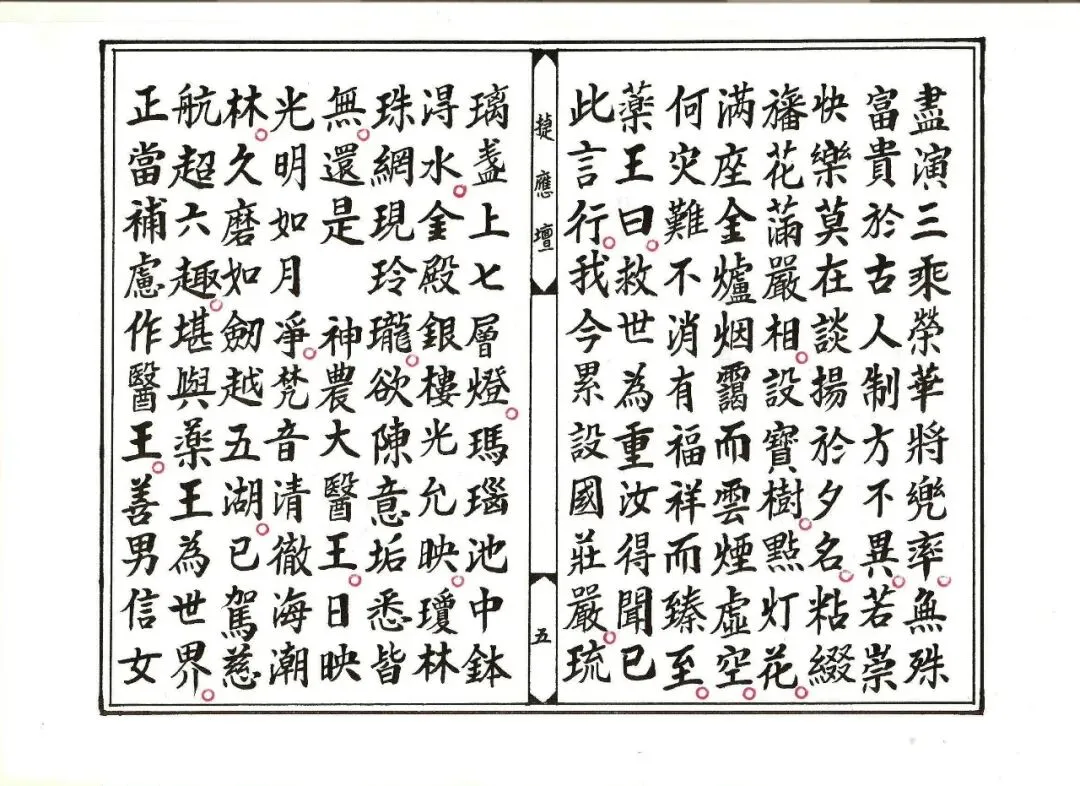 盡演三乘榮華將兜率。無殊
富貴於古人制方不異。若崇
快樂莫在談揚於夕名。粘綴
旛花滿嚴相。設寶樹。點灯花。
满座金爐烟靄而雲煙虛空。
何灾難不消有福祥而臻至。
藥王曰。救世為重汝得聞已
此言行。我今累設國莊嚴。琉
捷應壇
五
璃盞上七層燈。瑪瑙池中鉢
淂水。金殿銀樓光允映。瓊林
珠網現玲瓏。欲陳意垢悉皆
無。還是 神農大醫王。日映
光明如月凈。梵音清徹海潮
林。久磨如劒越五湖。已駕慈
航超六趣。堪與藥王為世界。
正當補慮作醫王。善男信女